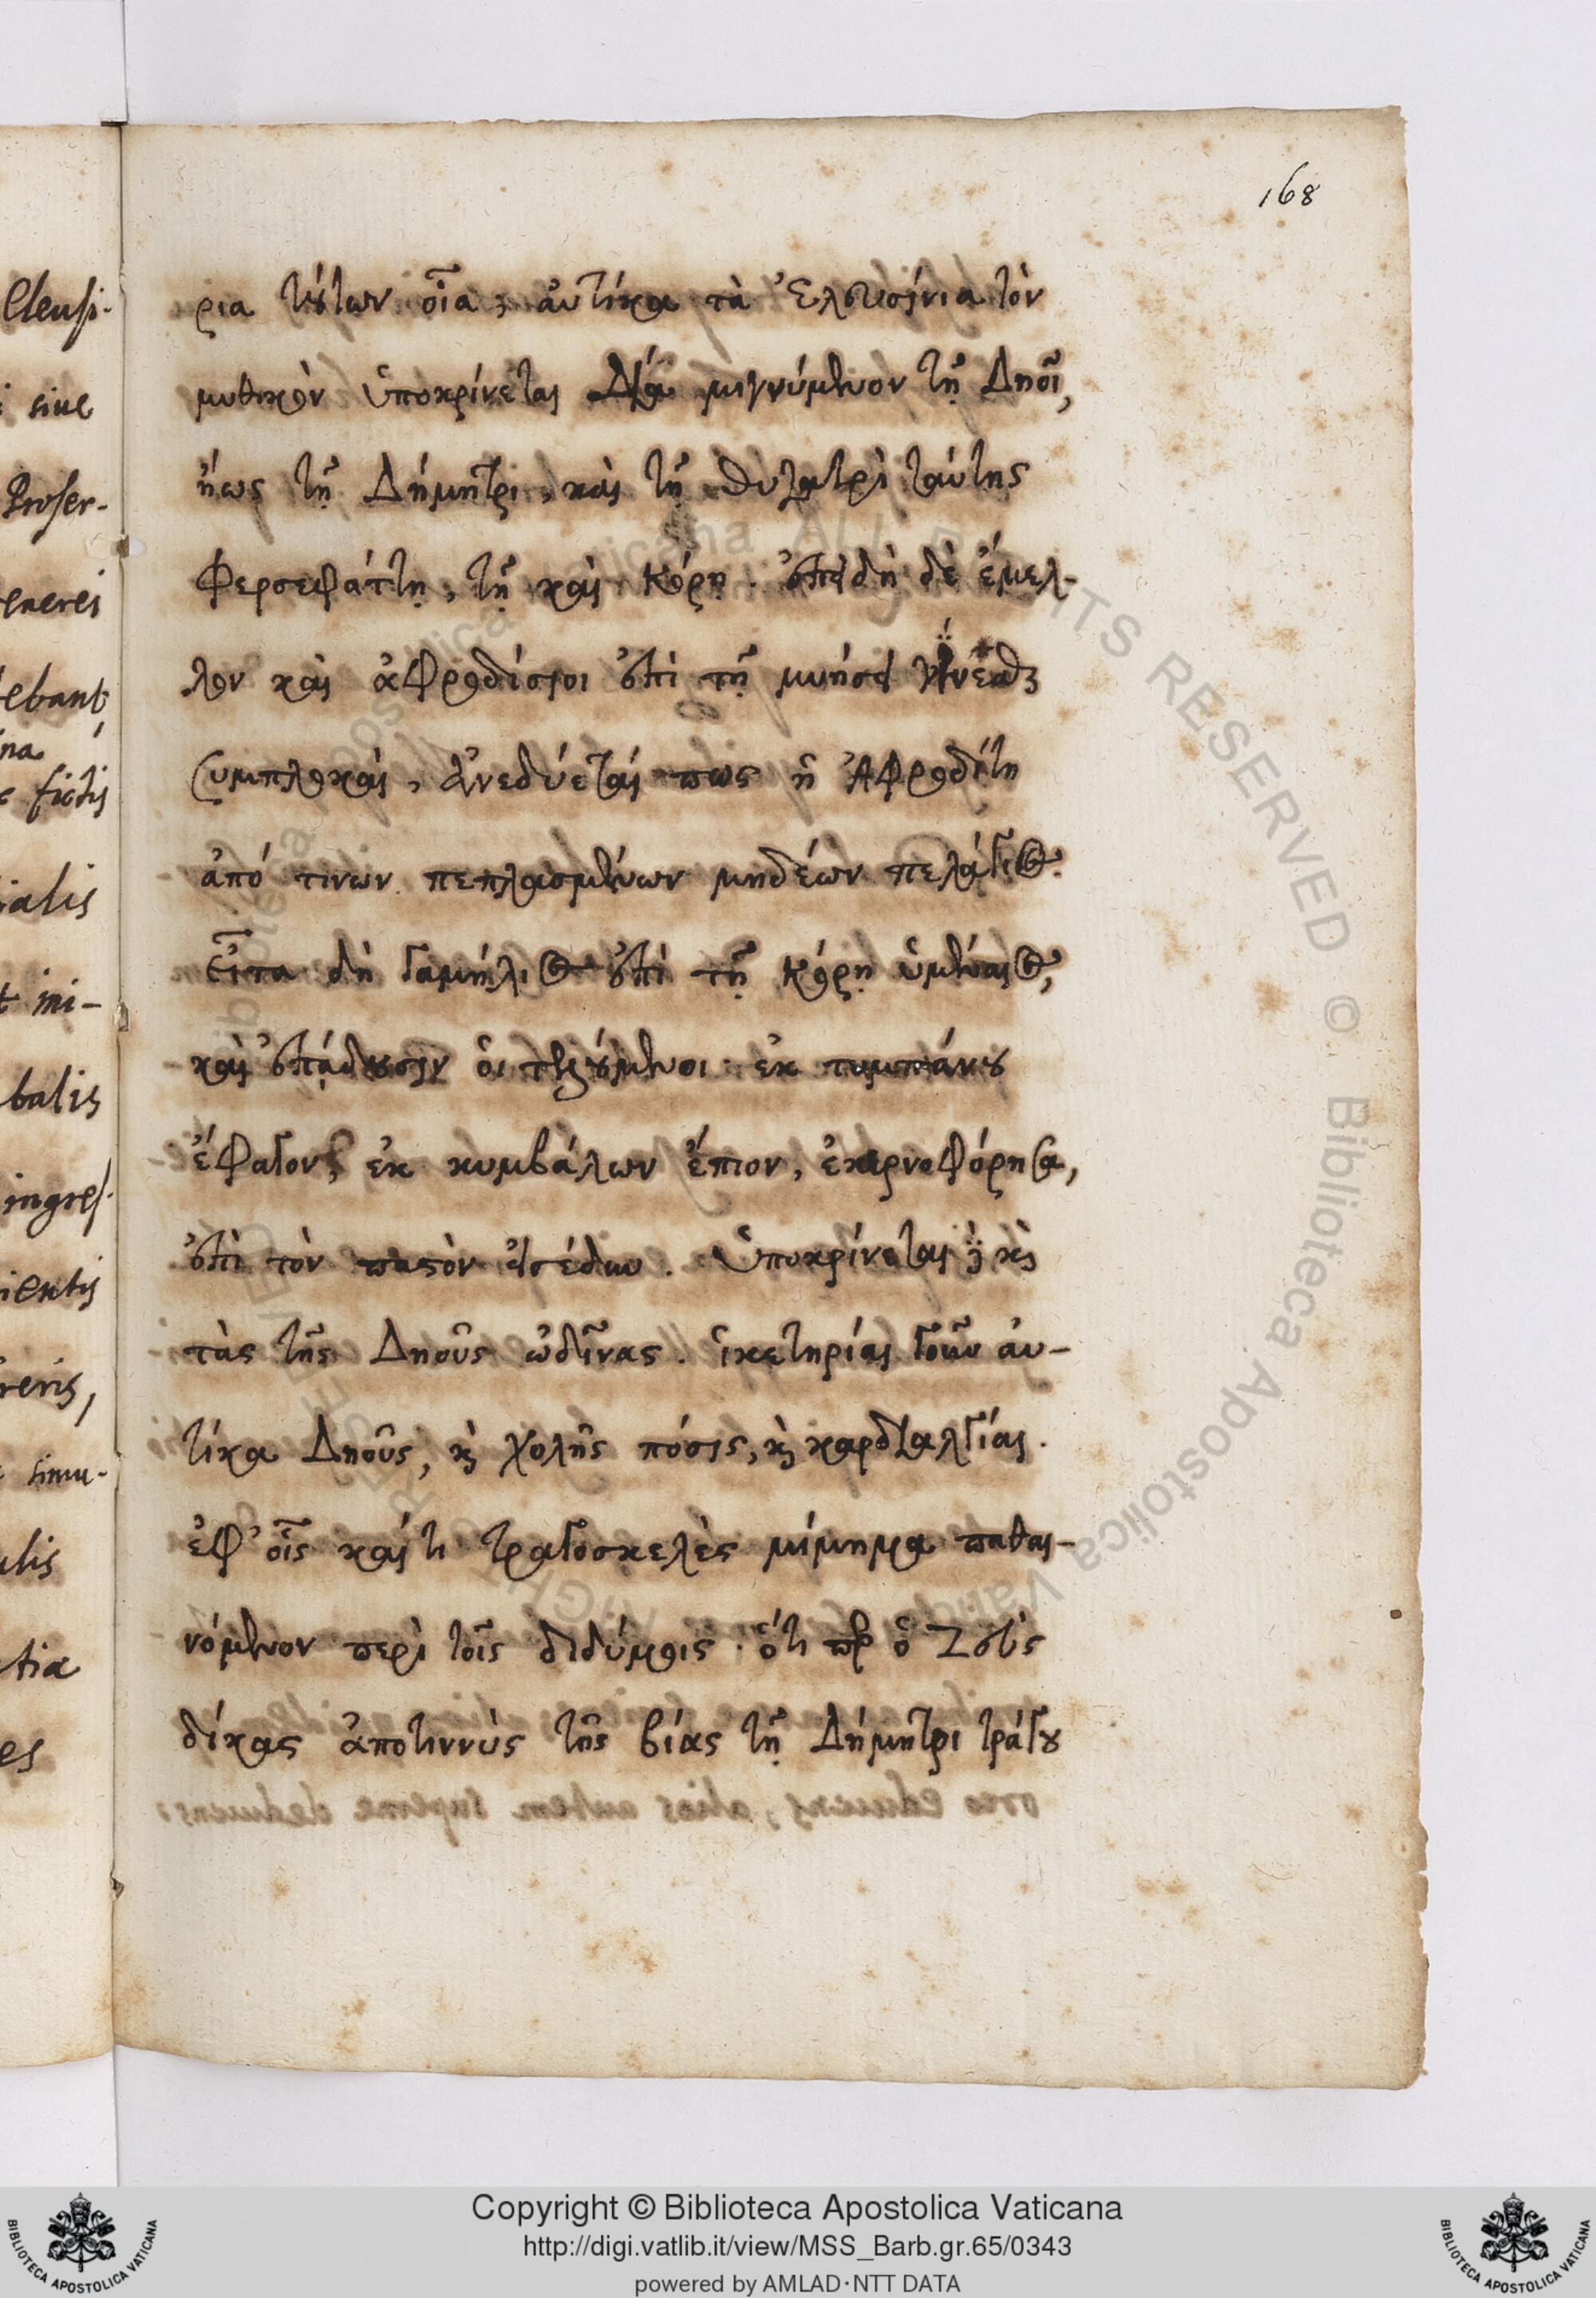 168
ρια τούτων οἷα, αὐτίκα τὰ Ἐλευσίνια τὸν
μυθικὸν ὑποκρίνεται Δία μιγνύμενον τῇ Δηοῖ,
ἤως τῇ Δήμητρι, καὶ τῇ θυγατρὶ ταύτης
Φερσεφάττῃ, τῇ καὶ Κόρῃ. ἐπειδὴ δὲ ἔμελ-
λον καὶ ἀφροδίσιοι ἐπὶ τῇ μυήσει
συμπλοκαὶ, ἀνεδύεταί πως ἡ Ἀφροδίτη
ἀπό τινων πεπλασμένων μηδέων πελάγιος.
εἶτα δὴ γαμήλιος ἐπὶ τῇ Κόρῃ ὑμέναιος,
καὶ ἐπᾴδουσιν οἱ τελούμενοι· ἐκ τυμπάνου
ἔφαγον, ἐκ κυμβάλων ἔπιον, ἐκερνοφόρησα,
ἐπὶ τὸν παστὸν εἰσέδυν. Ὑποκρίνεται δὲ καὶ
τὰς τῆς Δηοῦς ὠδῖνας. ἱκετηρίαι γοῦν αὐ-
τίκα Δηοῦς, καὶ χολῆς πόσις, καὶ καρδιαλγίαι.
ἐφ' οἷς καί τι τραγοσκελὲς μίμημα παθαι-
νόμενον περὶ τοῖς διδύμοις· ὅτι περ ὁ Ζεὺς
δίκας ἀποτιννὺς τῆς βίας τῇ Δήμητρι τράγου
Eleusi-
sive
Proser-
ebant
fictis
ialis
t ini-
balis
ingres-
ientis
reris,
simu-
tia
es
Copyright © Biblioteca Apostolica Vaticana
http://digi.vatlib.it/view/MSS_Barb.gr.65/0343
powered by AMLAD·NTT DATA
BIBLIOTECA APOSTOLICA VATICANA
BIBLIOTECA APOSTOLICA VATICANA